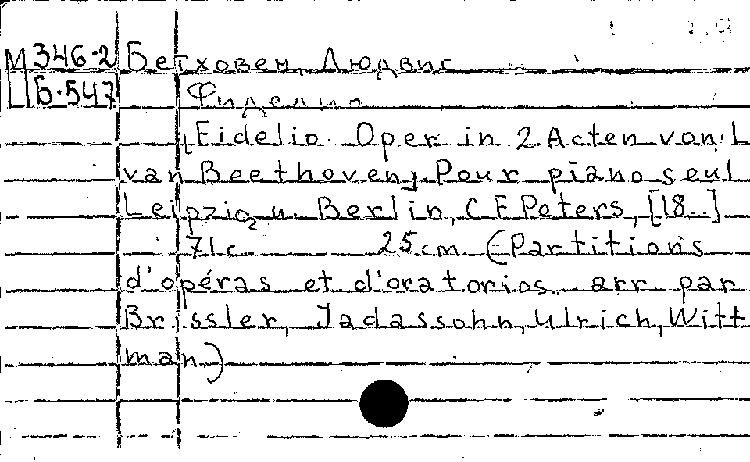 М346-2 Бетховен, Людвиг
ЦБ.547 Фиделио
[Fidelio. Oper in 2 Acten von L
van Beethoven]. Pour piano seul
Leipzig u. Berlin, C F Peters, [18..]
71с 25 cm (Partitions
d'opéras et d'oratorios arr par
Brissler, Jadassohn, Ulrich, Witt
man)